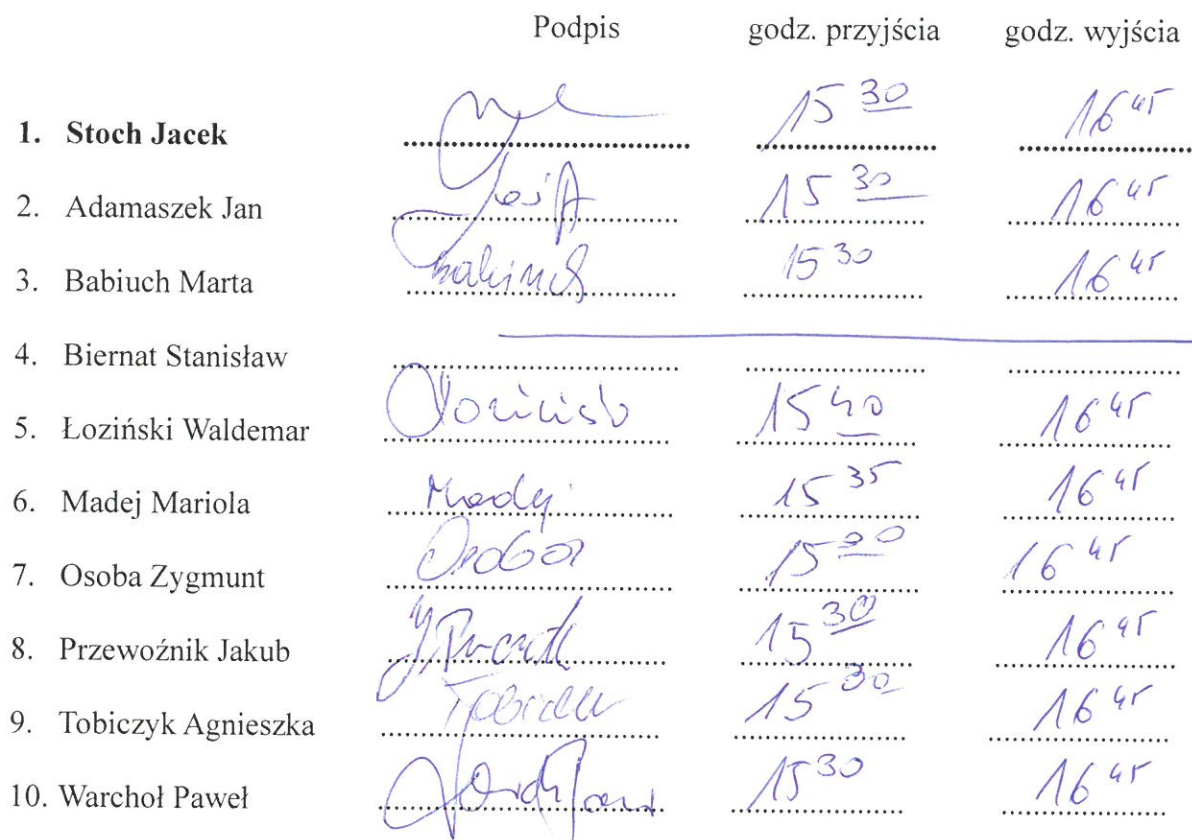 Podpis godz. przyjścia godz. wyjścia
1. Stoch Jacek 15 30 16 45
2. Adamaszek Jan 15 30 16 45
3. Babiuch Marta Babiuch 15 30 16 45
4. Biernat Stanisław
5. Łoziński Waldemar 15 40 16 45
6. Madej Mariola Madej 15 35 16 45
7. Osoba Zygmunt Osoba 15 16 45
8. Przewoźnik Jakub 15 30 16 45
9. Tobiczyk Agnieszka 15 16 45
10. Warchoł Paweł 15 30 16 45